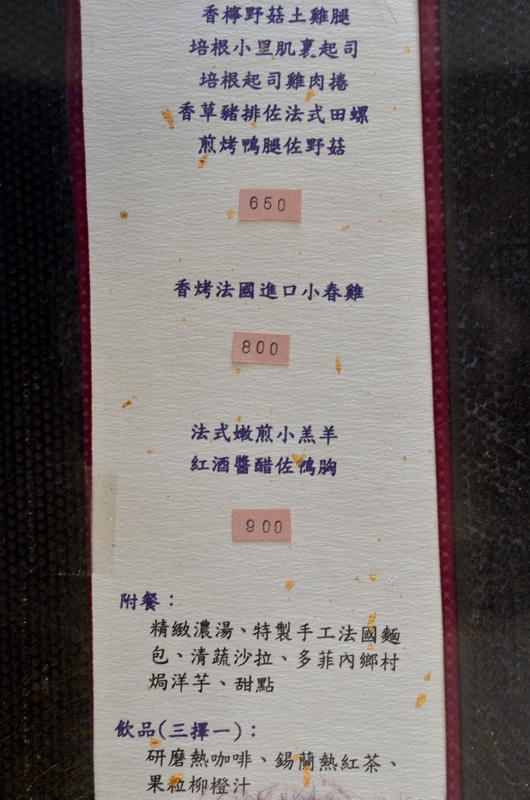 香檸野菇土雞腿
培根小里肌裹起司
培根起司雞肉捲
香草豬排佐法式田螺
煎烤鴨腿佐野菇
650
香烤法國進口小春雞
800
法式嫩煎小羔羊
紅酒醬醋佐鴨胸
900
附餐：
精緻濃湯、特製手工法國麵
包、清蔬沙拉、多菲內鄉村
焗洋芋、甜點
飲品(三擇一)：
研磨熱咖啡、錫蘭熱紅茶、
果粒柳橙汁